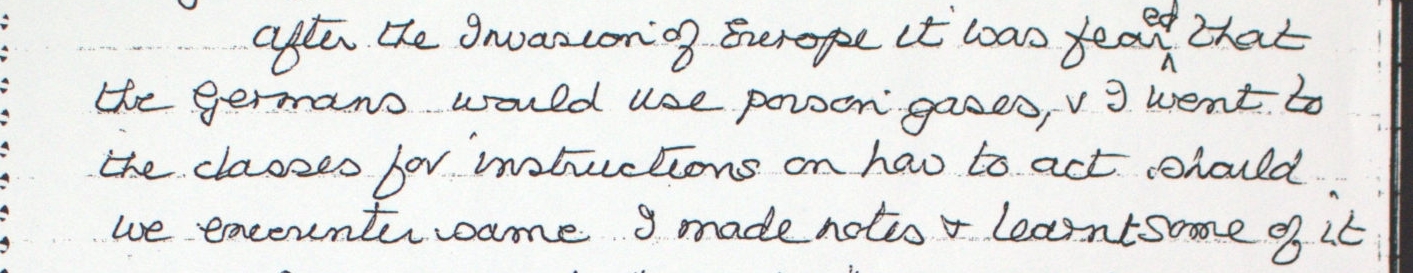 after the Invasion of Europe it was feared that
the Germans would use poison gases, & I went to
the classes for instructions on how to act should
we encounter same I made notes & learnt some of it